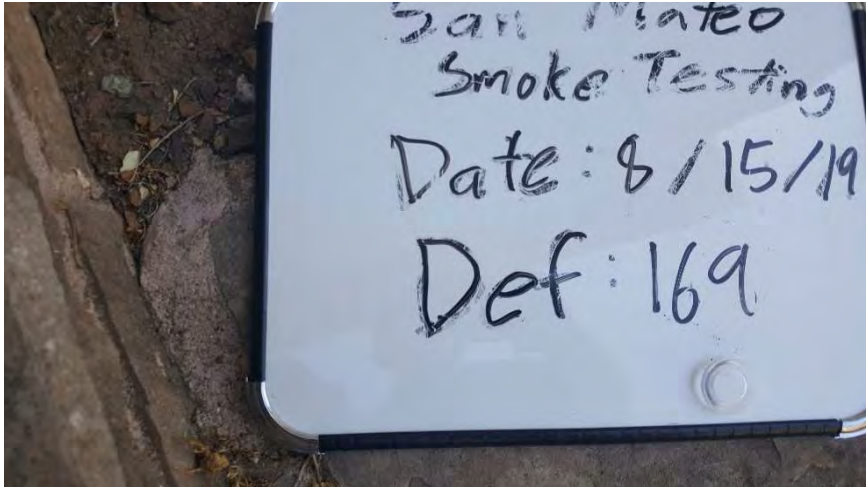 San Mateo
Smoke Testing
Date: 8/15/19
Def: 169